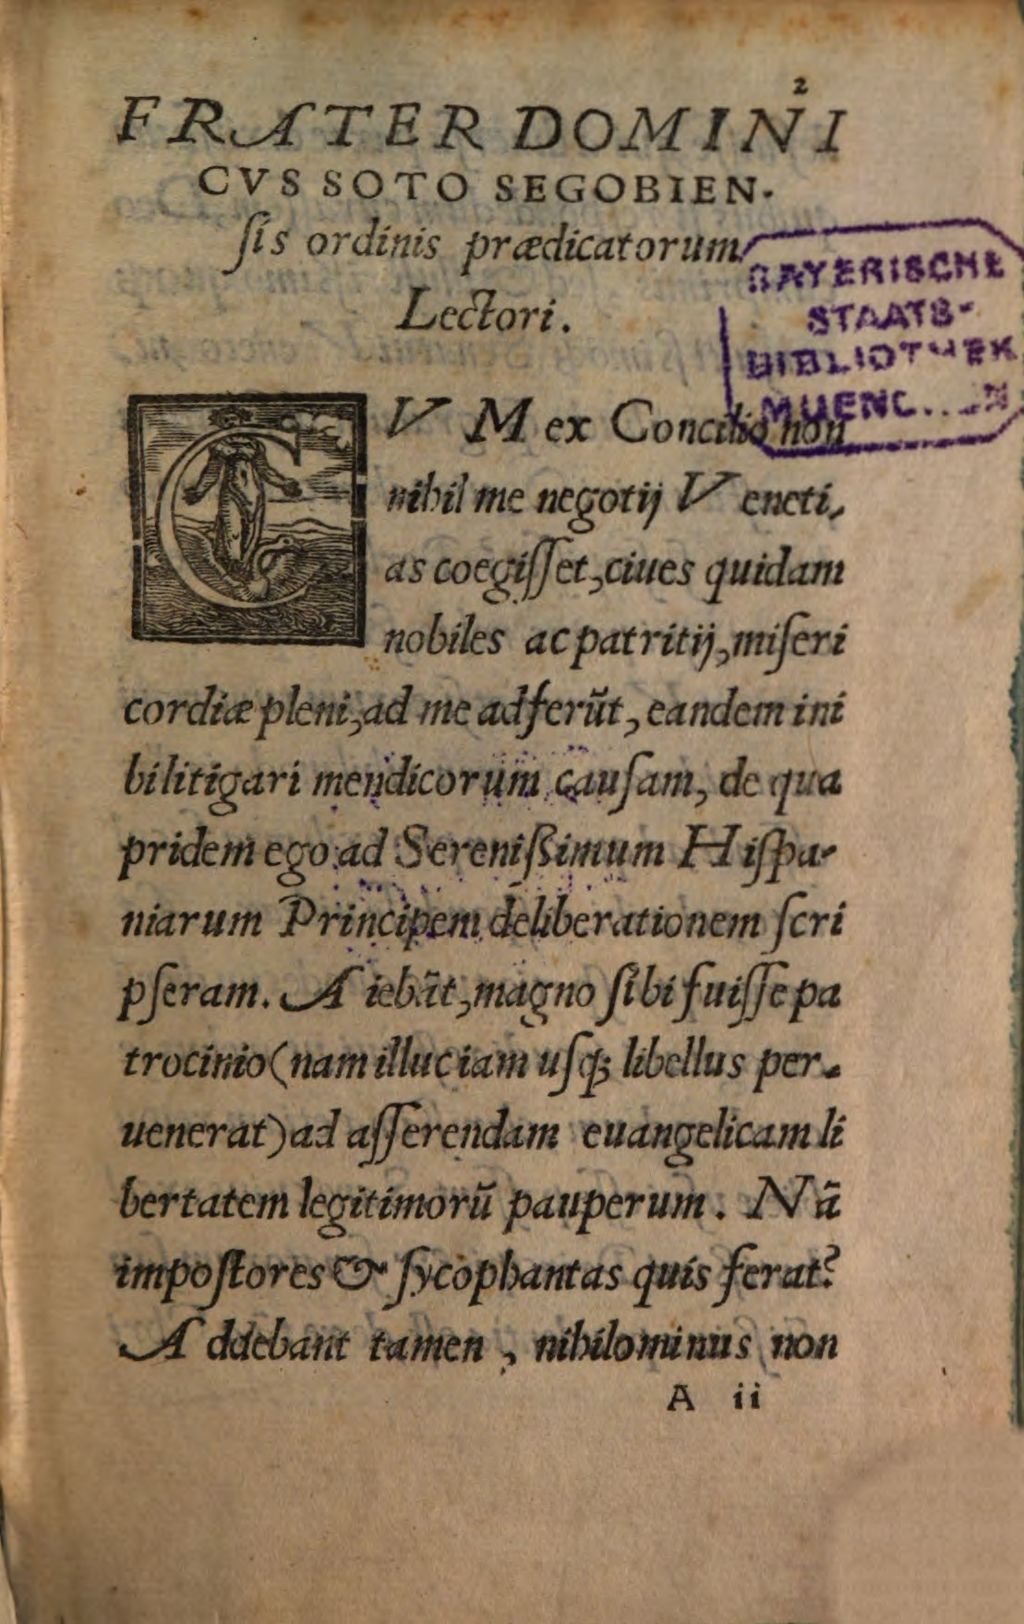 2
FRATER DOMINI
CVS SOTO SEGOBIEN-
ſis ordinis prædicatorum
Lectori.
BAYERISCHE
STAATS-
BIBLIOTHEK
MUENCHEN
CVM ex Concilio non
nihil me negotij Veneti-
as coegiſſet, ciues quidam
nobiles ac patritij, miſeri
cordiæ pleni, ad me adferūt, eandem ini
bi litigari mendicorum cauſam, de qua
pridem ego ad Sereniſsimum Hiſpa-
niarum Principem deliberationem ſcri
pſeram. Aiebāt, magno ſibi fuiſſe pa
trocinio (nam illuc iam uſq; libellus per-
uenerat) ad aſſerendam euangelicam li
bertatem legitimorū pauperum. Nā
impoſtores & ſycophantas quis ferat?
Addebant tamen, nihilominus non
A ii